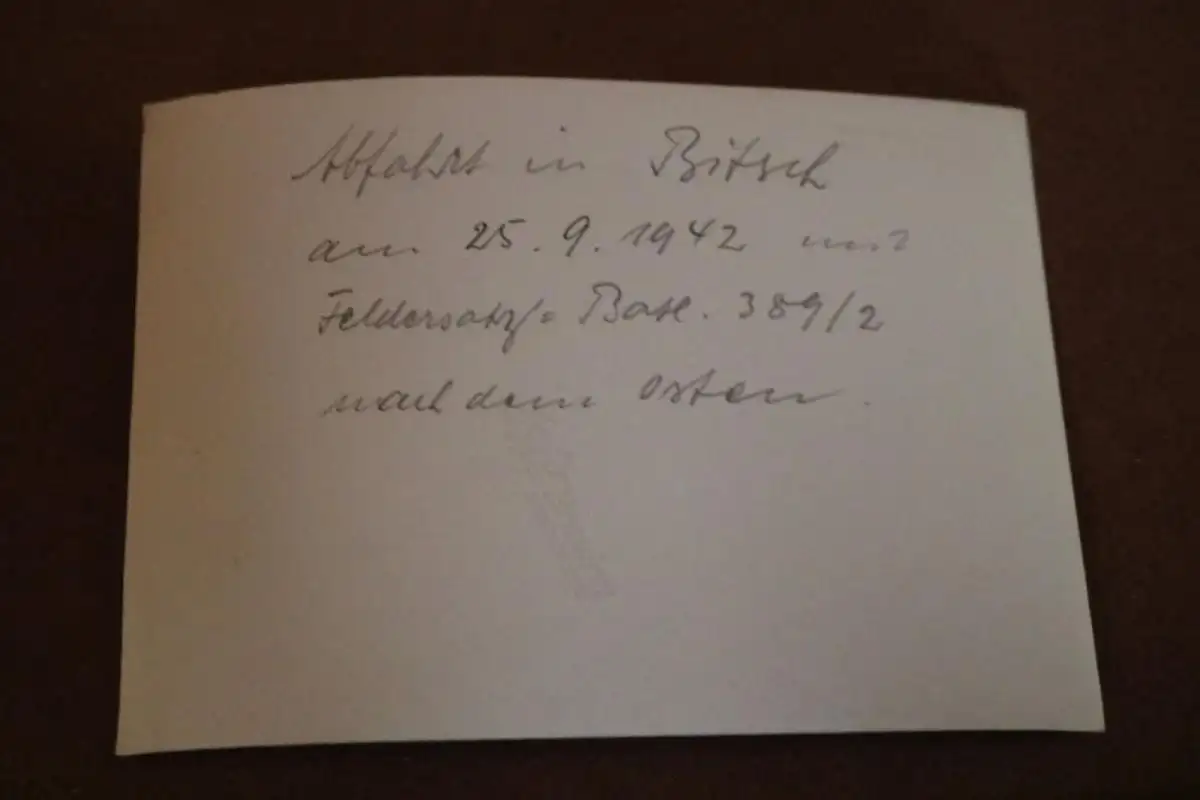 Abfahrt in Bitsch
am 25.9.1942 mit
Feldersatz= Batl. 389/2
nach dem Osten.